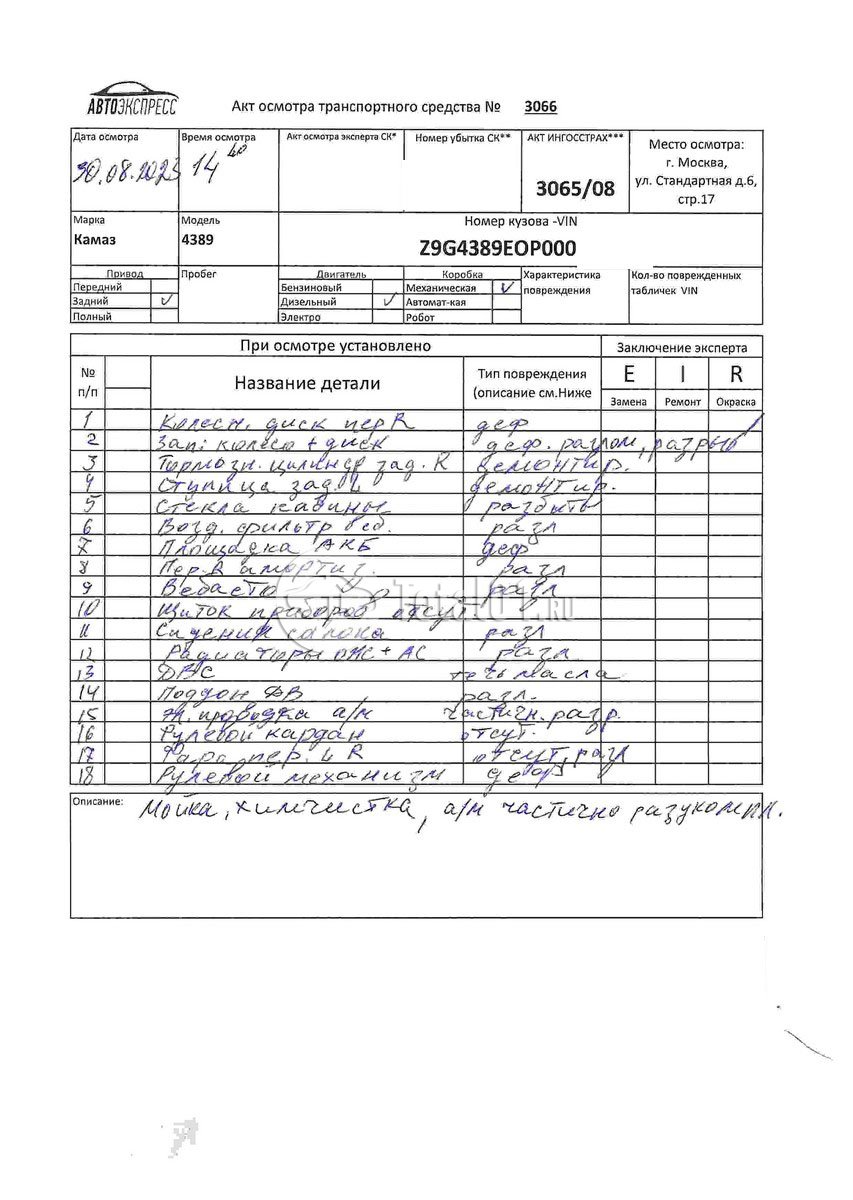 АВТОЭКСПРЕСС
Акт осмотра транспортного средства № 3066
Дата осмотра Время осмотра Акт осмотра эксперта СК* Номер убытка СК** АКТ ИНГОССТРАХ*** Место осмотра:
г. Москва,
ул. Стандартная д.6,
стр.17
30.08.2023 14 40 3065/08
Марка Модель Номер кузова -VIN
Камаз 4389 Z9G4389EOP000
Привод Пробег Двигатель Коробка Характеристика повреждения Кол-во поврежденных табличек VIN
Передний Бензиновый Механическая ✓
Задний ✓ Дизельный ✓ Автомат-кая
Полный Электро Робот
При осмотре установлено Заключение эксперта
№ п/п Название детали Тип повреждения (описание см.Ниже E I R
Замена Ремонт Окраска
1 Колесн. диск пер R деф
2 Зап. колесо + диск деф. разлом, разрыв
3 Тормозн. цилиндр зад. R демонтир.
4 Ступица зад. L демонтир.
5 Стекла кабины разбиты
6 Возд. фильтр разл
7 Площадка АКБ деф
8 Пер. R амортиз. разл
9 Вебасто разл
10 Щиток приборов отсут
11 Сидения салона разл
12 Радиаторы ОЖС + АС разл
13 ДВС течь масла
14 Поддон ДВ разл.
15 Эл. проводка а/м частичн. разр.
16 Рулевой кардан отсут.
17 Фара пер. L R отсут, разл
18 Рулевой механизм деф
Описание: Мойка, химчистка, а/м частично разукомпл.
TOTAL01.RU